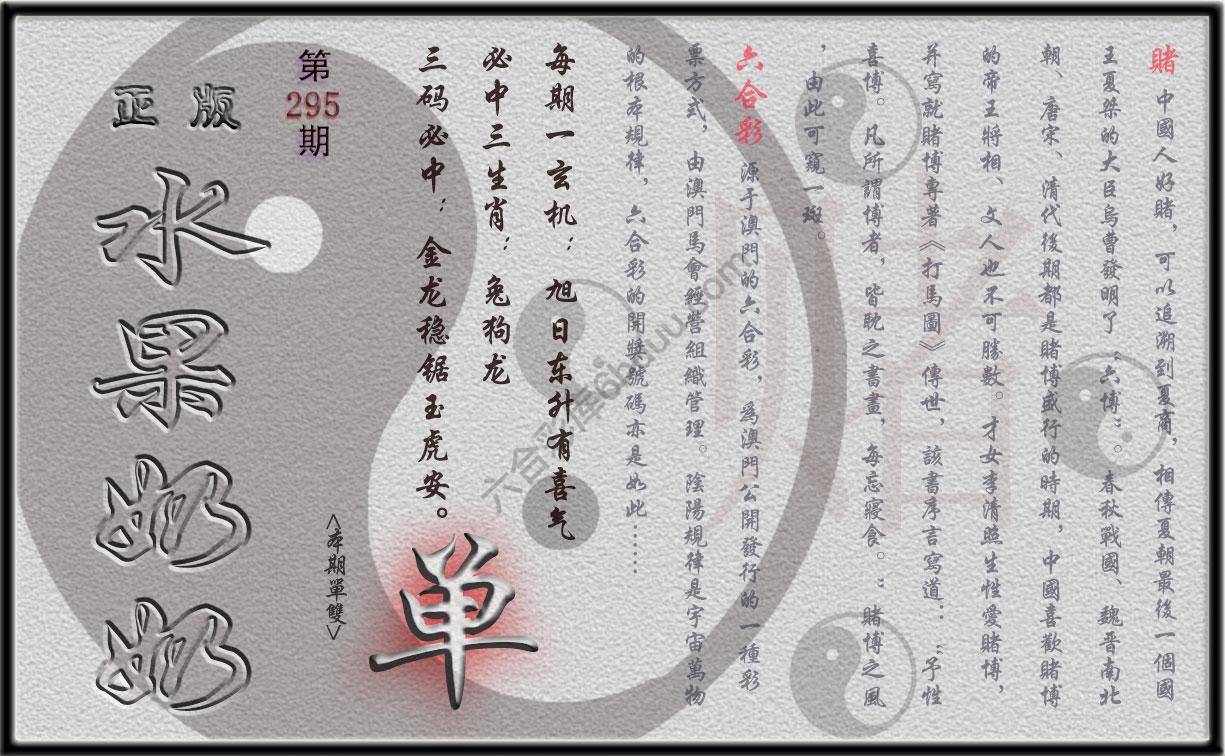 賭 中國人好賭，可以追溯到夏商，相傳夏朝最後一個國
王夏桀的大臣烏曹發明了“六博”。春秋戰國、魏晋南北
朝、唐宋、清代後期都是賭博盛行的時期，中國喜歡賭博
的帝王將相、文人也不可勝數。才女李清照生性愛賭博，
并寫就賭博專著《打馬圖》傳世，該書序言寫道：“予性
喜博。凡所謂博者，皆耽之書畫，每忘寢食。”賭博之風
，由此可窺一斑。
六合彩 源于澳門的六合彩，爲澳門公開發行的一種彩
票方式，由澳門馬會經營組織管理。陰陽規律是宇宙萬物
的根本規律，六合彩的開獎號碼亦是如此……
每期一玄机：旭日东升有喜气
必中三生肖：兔狗龙
三码必中：金龙稳锯玉虎安。
单
<本期單雙>
第
295
期
正版
水果奶奶
賭